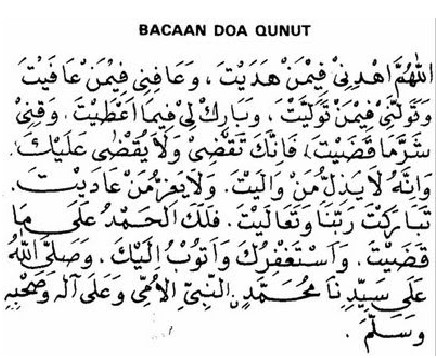 BACAAN DOA QUNUT
اَللّٰهُمَّ اهْدِنِيْ فِيْمَنْ هَدَيْتَ ، وَعَافِنِي فِيْمَنْ عَافَيْتَ
وَتَوَلَّنِيْ فِيْمَنْ تَوَلَّيْتَ ، وَبَارِكْ لِيْ فِيمَا اَعْطَيْتَ . وَقِنِيْ
شَرَّمَا قَضَيْتَ ، فَاِنَّكَ تَقْضِيْ وَلَا يُقْضٰى عَلَيْكَ .
وَاِنَّهُ لَا يَذِلُّ مَنْ وَالَيْتَ . وَلَا يَعِزُّ مَنْ عَادَيْتَ .
تَبَارَكْتَ رَبَّنَا وَتَعَالَيْتَ . فَلَكَ الْحَمْدُ عَلٰى مَا
قَضَيْتَ . وَاَسْتَغْفِرُكَ وَاَتُوْبُ اِلَيْكَ . وَصَلَّى اللّٰهُ
عَلٰى سَيِّدِنَا مُحَمَّدٍ النَّبِيِّ الْاُمِّيِّ وَعَلٰى آلِهِ وَصَحْبِهِ
وَسَلَّمَ .